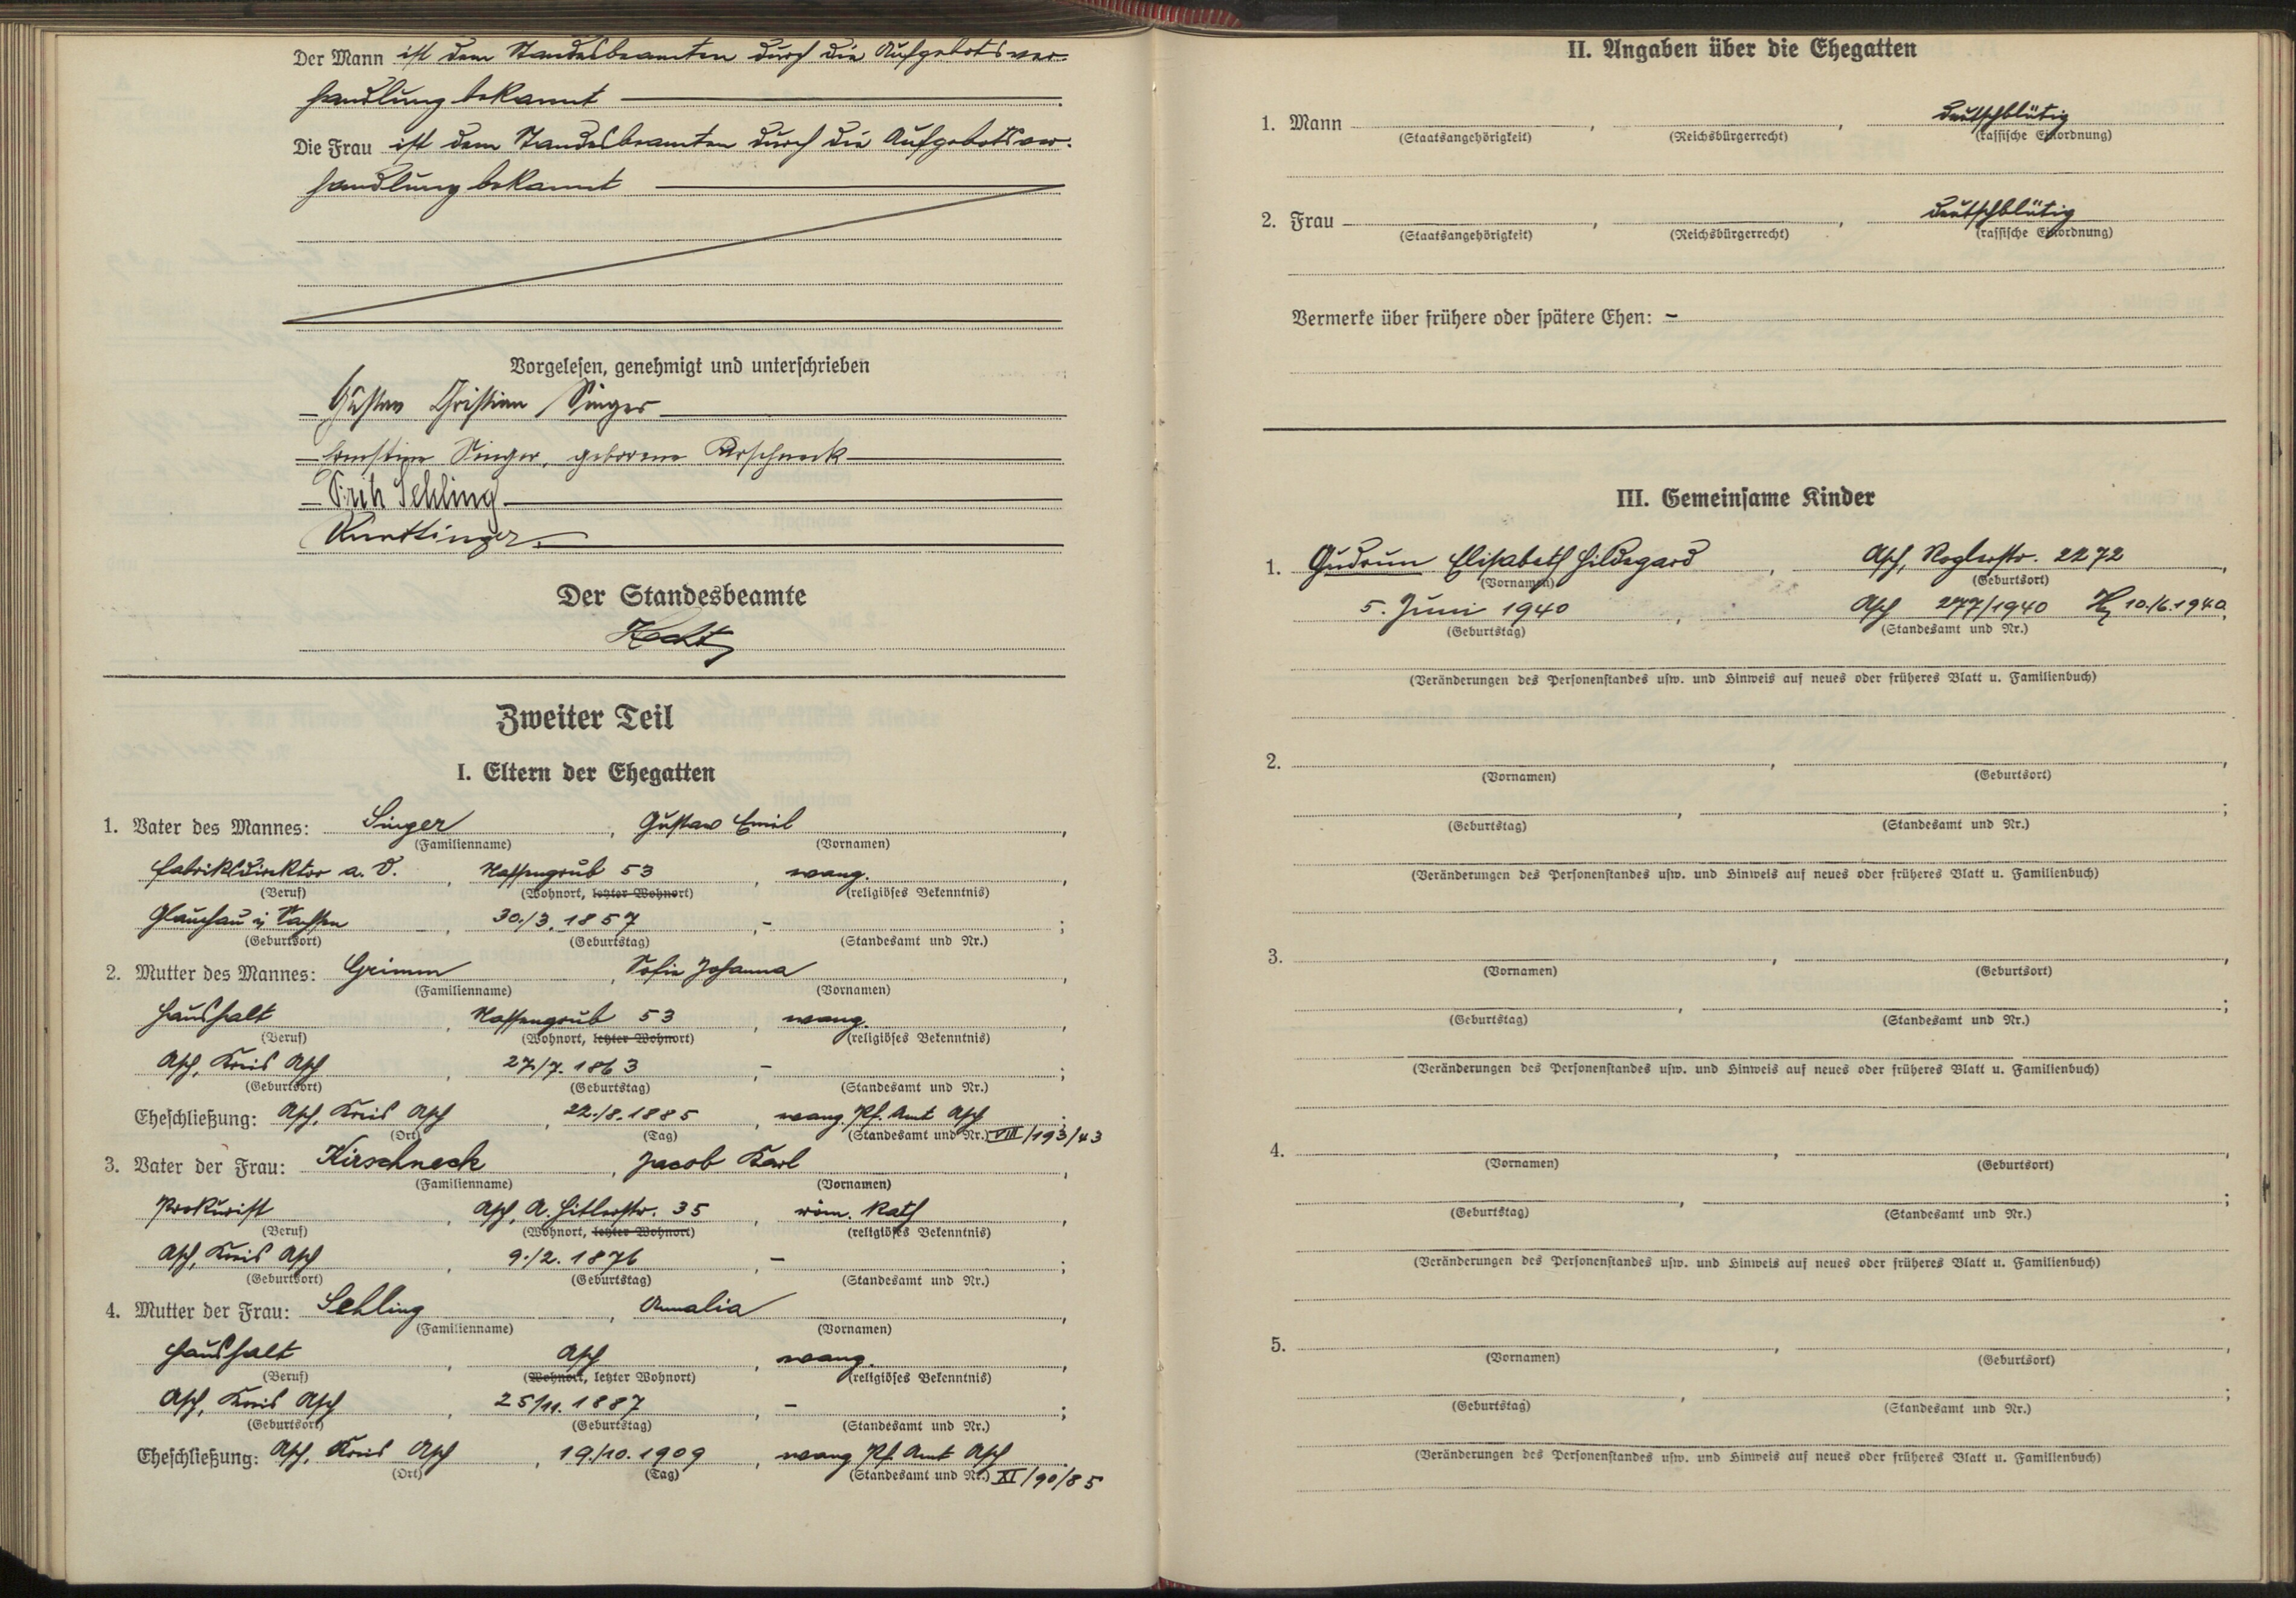 Der Mann ist dem Standesbeamten durch die Aufgebotsver-
handlung bekannt
Die Frau ist dem Standesbeamten durch die Aufgebotsver-
handlung bekannt
Vorgelesen, genehmigt und unterschrieben
Gustav Christian Singer
Ernestine Singer, geborene Kirschneck
Sehling
Der Standesbeamte
Zweiter Teil
I. Eltern der Ehegatten
1. Vater des Mannes: Singer, Gustav Emil,
(Familienname) (Vornamen)
Fabrikdirektor a. D., Nassengrub 53, evang.,
(Beruf) (Wohnort, letzter Wohnort) (religiöses Bekenntnis)
Glauchau i. Sachsen, 30./3. 1857, - ;
(Geburtsort) (Geburtstag) (Standesamt und Nr.)
2. Mutter des Mannes: Grimm, Sofie Johanna,
(Familienname) (Vornamen)
Haushalt, Nassengrub 53, evang.,
(Beruf) (Wohnort, letzter Wohnort) (religiöses Bekenntnis)
Asch, Kreis Asch, 27./7. 1863, - ;
(Geburtsort) (Geburtstag) (Standesamt und Nr.)
Eheschließung: Asch, Kreis Asch, 22./8. 1885, evang. Pf. Amt Asch;
(Ort) (Tag) (Standesamt und Nr.) VIII/193/43
3. Vater der Frau: Kirschneck, Jacob Karl,
(Familienname) (Vornamen)
Prokurist, Asch, A. Hitlerstr. 35, röm. kath,
(Beruf) (Wohnort, letzter Wohnort) (religiöses Bekenntnis)
Asch, Kreis Asch, 9./2. 1876, - ;
(Geburtsort) (Geburtstag) (Standesamt und Nr.)
4. Mutter der Frau: Sehling, Amalia,
(Familienname) (Vornamen)
Haushalt, Asch, evang.,
(Beruf) (Wohnort, letzter Wohnort) (religiöses Bekenntnis)
Asch, Kreis Asch, 25/11. 1887, - ;
(Geburtsort) (Geburtstag) (Standesamt und Nr.)
Eheschließung: Asch, Kreis Asch, 19./10. 1909, evang Pf. Amt Asch
(Ort) (Tag) (Standesamt und Nr.) XI/90/85
II. Angaben über die Ehegatten
1. Mann , , deutschblütig
(Staatsangehörigkeit) (Reichsbürgerrecht) (rassische Einordnung)
2. Frau , , deutschblütig
(Staatsangehörigkeit) (Reichsbürgerrecht) (rassische Einordnung)
Vermerke über frühere oder spätere Ehen: -
III. Gemeinsame Kinder
1. Gudrun Elisabeth Hildegard, Asch, Roglerstr. 2272,
(Vornamen) (Geburtsort)
5. Juni 1940, Asch 277/1940 10./6. 1940
(Geburtstag) (Standesamt und Nr.)
(Veränderungen des Personenstandes usw. und Hinweis auf neues oder früheres Blatt u. Familienbuch)
2. , ,
(Vornamen) (Geburtsort)
, ;
(Geburtstag) (Standesamt und Nr.)
(Veränderungen des Personenstandes usw. und Hinweis auf neues oder früheres Blatt u. Familienbuch)
3. , ,
(Vornamen) (Geburtsort)
, ;
(Geburtstag) (Standesamt und Nr.)
(Veränderungen des Personenstandes usw. und Hinweis auf neues oder früheres Blatt u. Familienbuch)
4. , ,
(Vornamen) (Geburtsort)
, ;
(Geburtstag) (Standesamt und Nr.)
(Veränderungen des Personenstandes usw. und Hinweis auf neues oder früheres Blatt u. Familienbuch)
5. , ,
(Vornamen) (Geburtsort)
, ;
(Geburtstag) (Standesamt und Nr.)
(Veränderungen des Personenstandes usw. und Hinweis auf neues oder früheres Blatt u. Familienbuch)